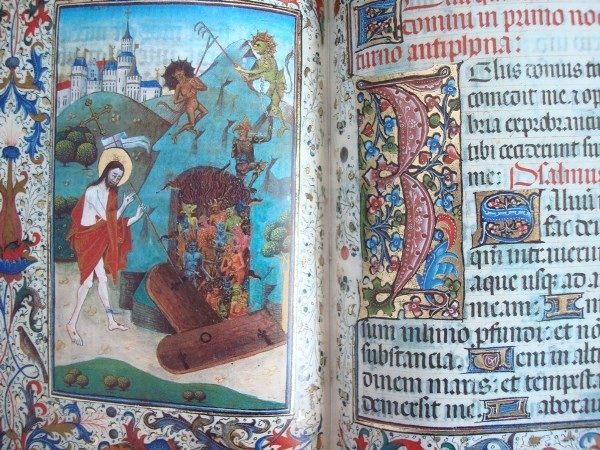 domini in primo noc
turno antiphona:
Zelus domus tu
comedit me: a op
bria exprobran
tibi ceciderunt su
me: Psalmus
Saluu
fac de
qui intrauerun
aque usqz ad a
meam: In
fixum in limo pfundi: et no
substancia. Veni in alti
dinem maris: et tempesta
demersit me. Laboraui